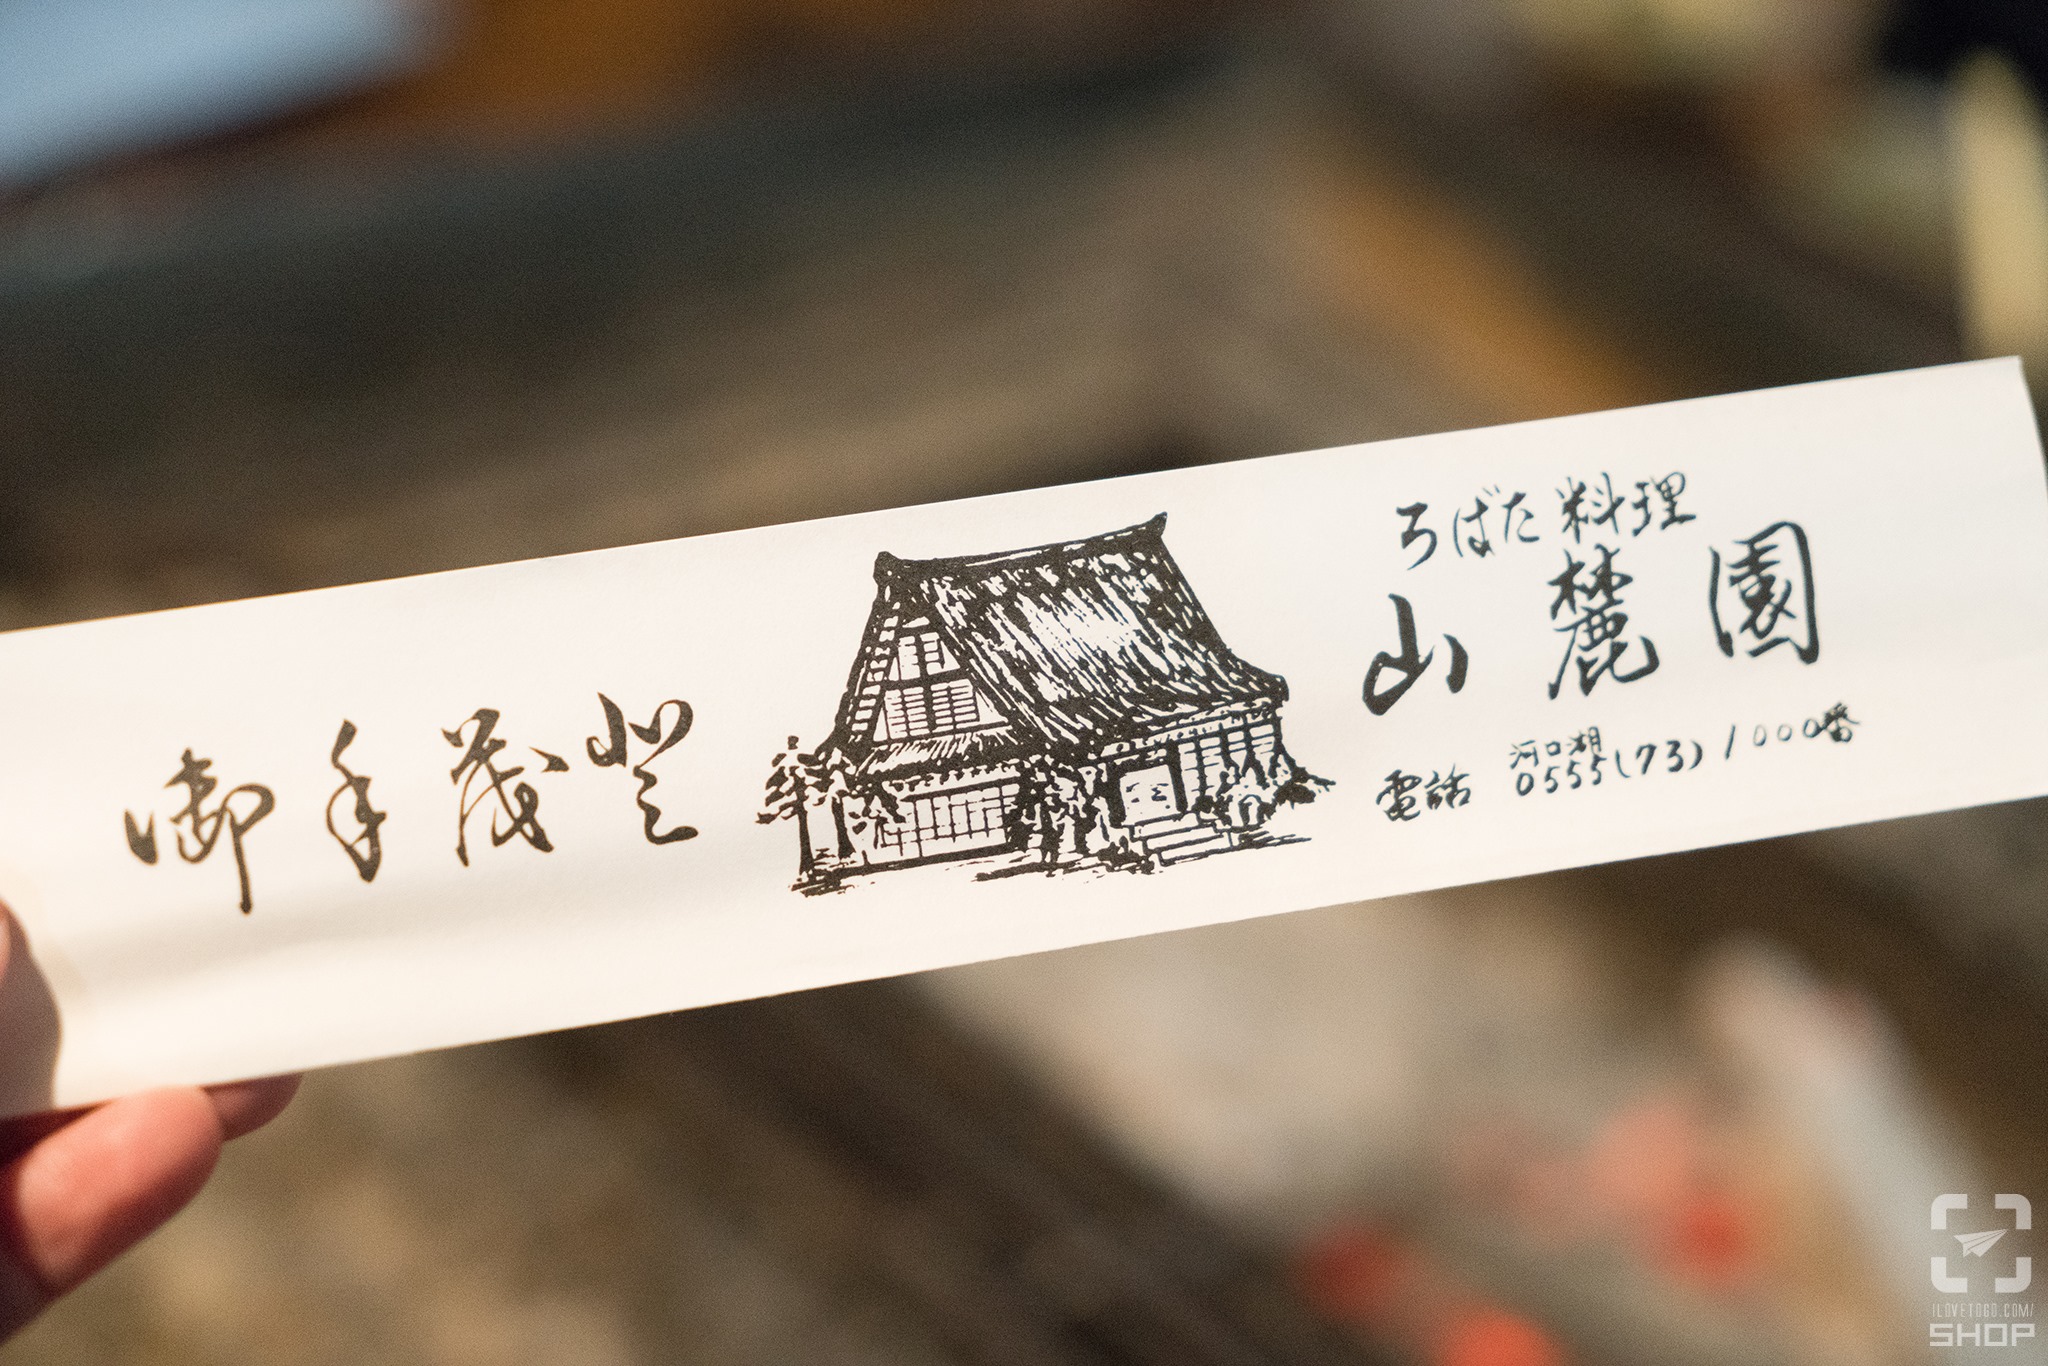 御手茂登
ろばた料理
山麓園
電話 河口湖 0555(73)1000番
ILOVETOGO.COM/
SHOP